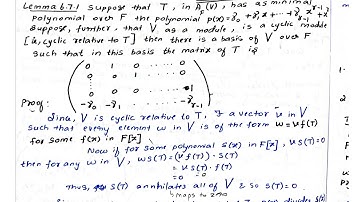 Lemma 6.7.1 Suppose that T, in A_F(V), has as minimal
polynomial over F the polynomial p(x) = γ₀ + γ₁x + ... + γ_{r-1}x^{r-1} + x^r
Suppose, further, that V as a module, is a cyclic module
[is, cyclic relative to T] then there is a basis of V over F
such that in this basis the matrix of T is
0 1 0 ... 0
0 0 1 ... 0
-γ₀ -γ₁ ... -γ_{r-1}
Proof:
Since, V is cyclic relative to T, ∃ a vector v in V
such that every element w in V is of the form w = v f(T)
for some f(x) in F[x]
Now if for some polynomial s(x) in F[x], v s(T) = 0
then for any w in V, w s(T) = (v f(T)) · s(T)
= v s(T) · f(T)
= 0
Thus, s(T) annihilates all of V & so s(T) = 0
maps to zero